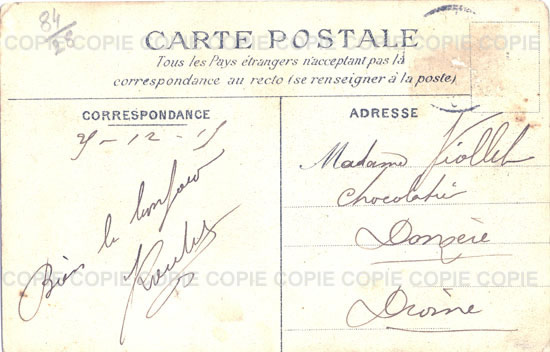 84
CARTE POSTALE
Tous les Pays étrangers n'acceptant pas la
correspondance au recto (se renseigner à la poste)
CORRESPONDANCE
ADRESSE
Madame Viollet
Chocolatié
Donzère
Drôme
Bien le bonjour
COPIE COPIE COPIE COPIE COPIE COPIE COPIE
COPIE COPIE COPIE COPIE COPIE COPIE COPIE
COPIE COPIE COPIE COPIE COPIE COPIE COPIE